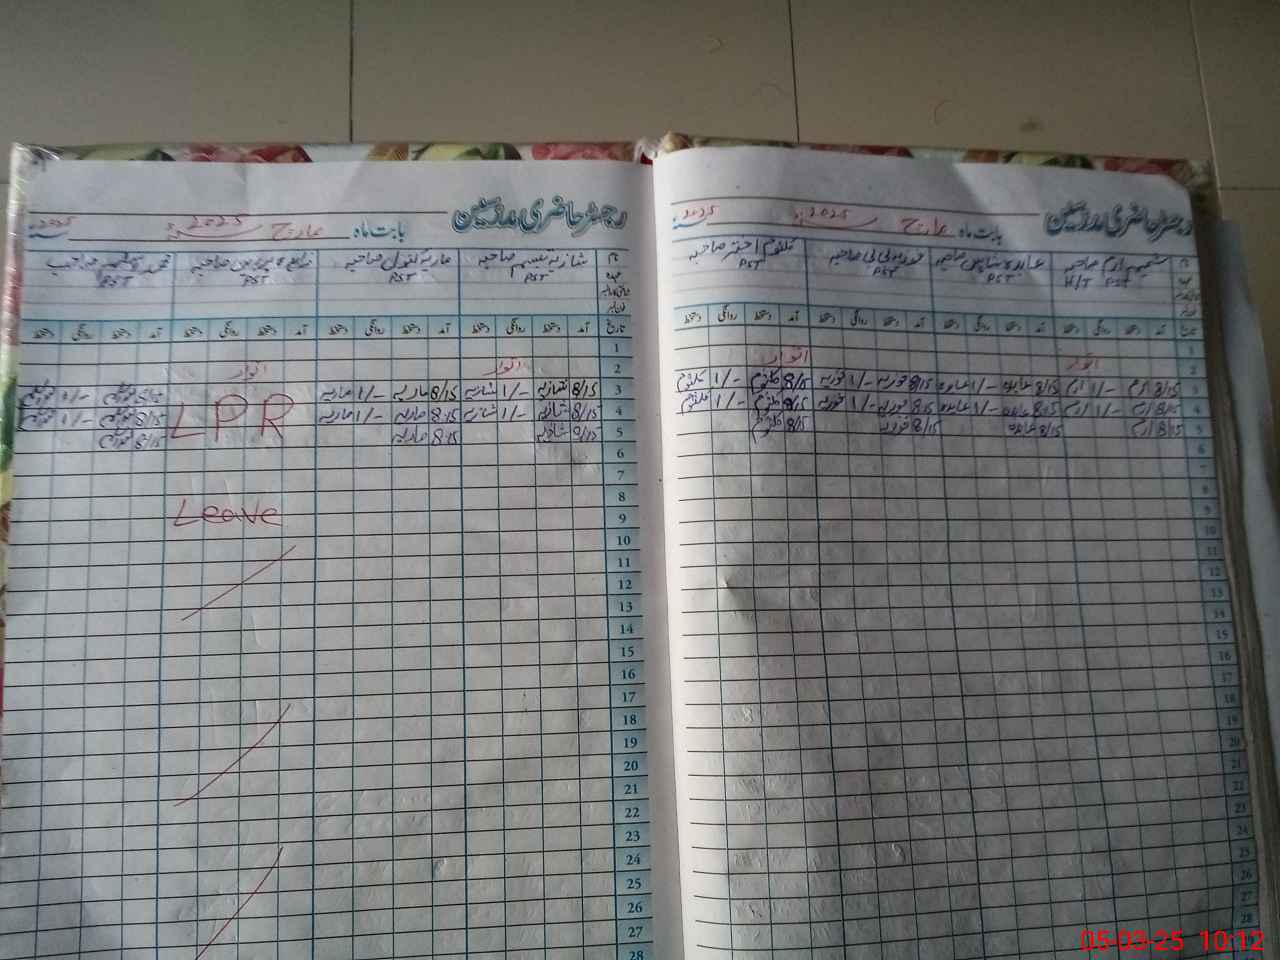 رجسٹر حاضری مدرسین بابت ماہ مارچ 2025ء 2025ء
شمیم ارم صاحبہ عابدہ شاہین صاحبہ فوزیہ بی بی صاحبہ کلثوم اختر صاحبہ
H/T PST PST PST PST
تاریخ آمد دستخط روانگی دستخط آمد دستخط روانگی دستخط آمد دستخط روانگی دستخط آمد دستخط روانگی دستخط
1
2 اتوار اتوار
3 8/15 ارم 1/- ارم 8/15 عابدہ 1/- عابدہ 8/15 فوزیہ 1/- فوزیہ 8/15 کلثوم 1/- کلثوم
4 8/15 ارم 1/- ارم 8/15 عابدہ 1/- عابدہ 8/15 فوزیہ 1/- فوزیہ 8/15 کلثوم 1/- کلثوم
5 8/15 ارم 8/15 عابدہ 8/15 فوزیہ 8/15 کلثوم
6
7
8
9
10
11
12
13
14
15
16
17
18
19
20
21
22
23
24
25
26
27
28
رجسٹر حاضری مدرسین بابت ماہ مارچ 2025ء 2025ء
شازیہ نسیم صاحبہ ماریہ بتول صاحبہ صاحبہ محمد
PST PST PST PST
تاریخ آمد دستخط روانگی دستخط آمد دستخط روانگی دستخط آمد دستخط روانگی دستخط آمد دستخط روانگی دستخط
1
2 اتوار اتوار
3 8/15 شازیہ 1/- شازیہ 8/15 ماریہ 1/- ماریہ 8/15 1/-
4 8/15 شازیہ 1/- شازیہ 8/15 ماریہ 1/- ماریہ LPR 8/15 1/-
5 8/15 شازیہ 8/15 ماریہ 8/15
6
7
8
9 Leave
10
11
12
13
14
15
16
17
18
19
20
21
22
23
24
25
26
27
28
05-03-25 10:12